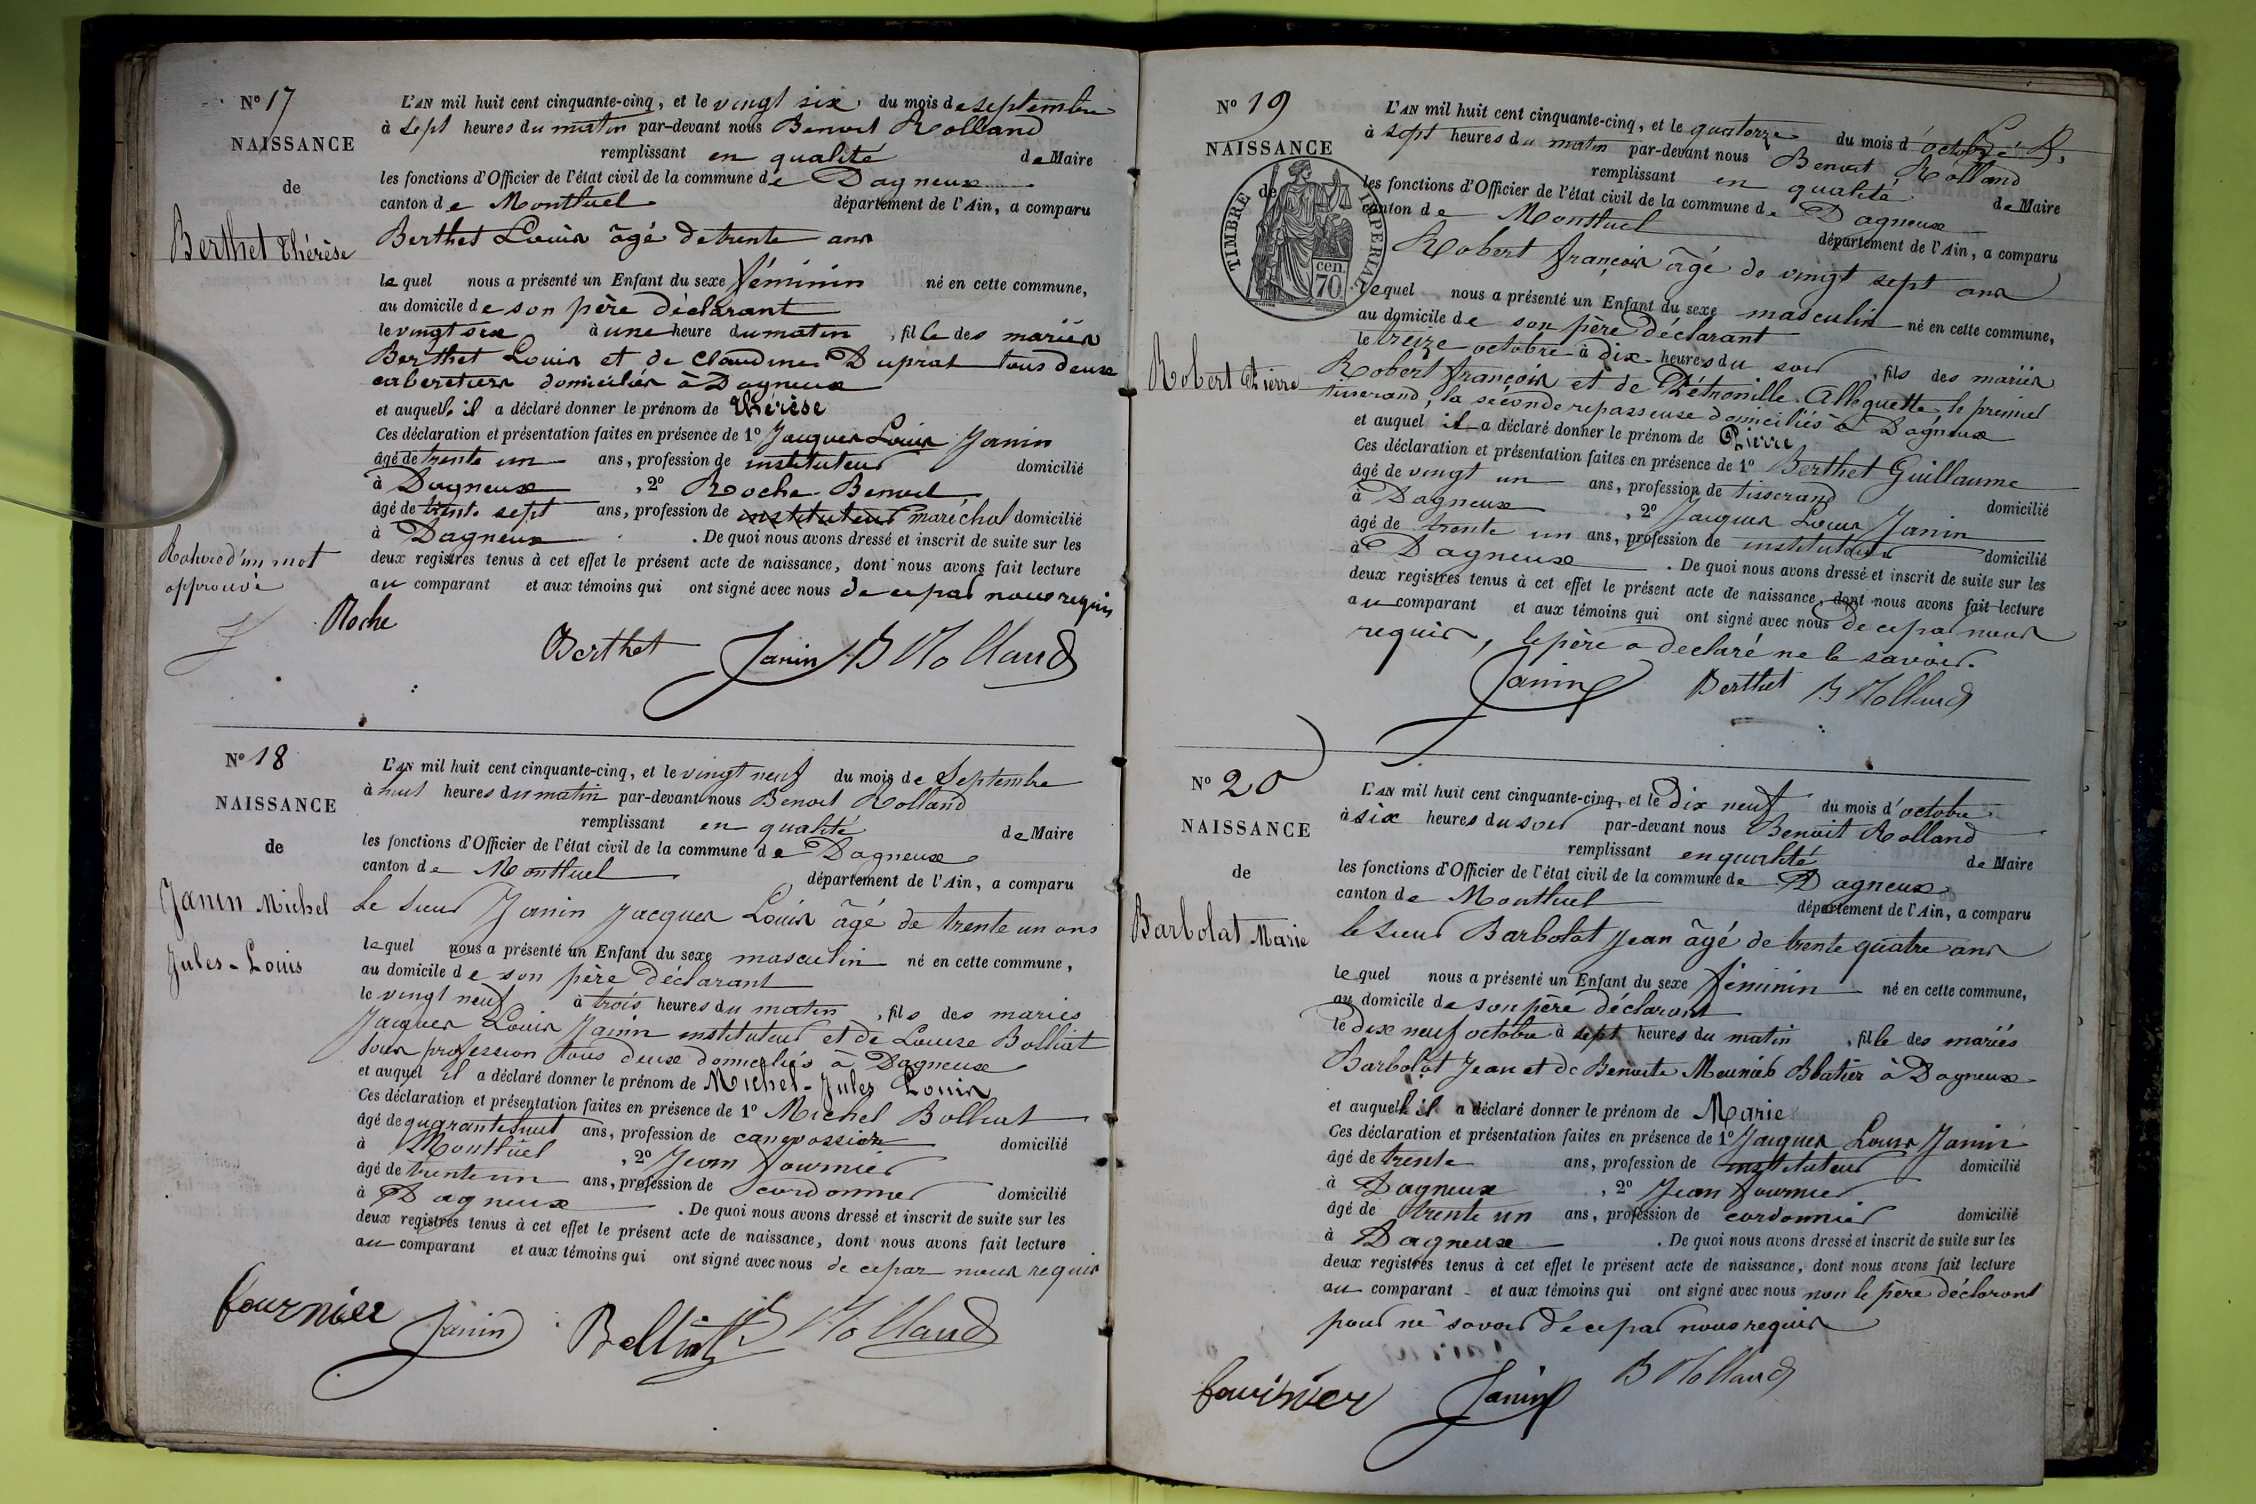 N° 17
NAISSANCE
de
Berthet Thérèse
L'AN mil huit cent cinquante-cinq, et le vingt six du mois de septembre
à sept heures du matin par-devant nous Benoit Rolland
remplissant en qualité de Maire
les fonctions d'Officier de l'état civil de la commune de Dagneux
canton de Montluel département de l'Ain, a comparu
Berthet Louis âgé de trente ans
lequel nous a présenté un Enfant du sexe féminin né en cette commune,
au domicile de son père déclarant
le vingt six à une heure du matin, fille des mariés
Berthet Louis et de Claudine Duprat tous deux
cabaretiers domiciliés à Dagneux
et auquelle il a déclaré donner le prénom de Thérèse
Ces déclaration et présentation faites en présence de 1° Jacques Louis Janin
âgé de trente un ans, profession de instituteur domicilié
à Dagneux, 2° Roche Benoit
âgé de trente sept ans, profession de instituteur maréchal domicilié
à Dagneux. De quoi nous avons dressé et inscrit de suite sur les
deux registres tenus à cet effet le présent acte de naissance, dont nous avons fait lecture
au comparant et aux témoins qui ont signé avec nous de ce par nous requis
Rature d'un mot
approuvé
J
Roche
Berthet Janin B Rolland
N° 18
NAISSANCE
de
Janin Michel
Jules-Louis
L'AN mil huit cent cinquante-cinq, et le vingt neuf du mois de Septembre
à huit heures du matin par-devant nous Benoit Rolland
remplissant en qualité de Maire
les fonctions d'Officier de l'état civil de la commune de Dagneux
canton de Montluel département de l'Ain, a comparu
Le Sieur Janin Jacques Louis âgé de trente un ans
lequel nous a présenté un Enfant du sexe masculin né en cette commune,
au domicile de son père déclarant
le vingt neuf à trois heures du matin, fils des mariés
Jacques Louis Janin instituteur et de Louise Bolliat
sans profession tous deux domiciliés à Dagneux
et auquel il a déclaré donner le prénom de Michel-Jules Louis
Ces déclaration et présentation faites en présence de 1° Michel Bolliat
âgé de quarante huit ans, profession de domicilié
à Montluel, 2° Jean Fournier
âgé de trente un ans, profession de cordonnier domicilié
à Dagneux. De quoi nous avons dressé et inscrit de suite sur les
deux registres tenus à cet effet le présent acte de naissance, dont nous avons fait lecture
au comparant et aux témoins qui ont signé avec nous de ce par nous requis
fournier Janin Bolliat B Rolland
N° 19
NAISSANCE
de
TIMBRE IMPERIAL
cen.
70
Robert Pierre
L'AN mil huit cent cinquante-cinq, et le quatorze du mois d'octobre
à sept heures du matin par-devant nous Benoit Rolland
remplissant en qualité de Maire
les fonctions d'Officier de l'état civil de la commune de Dagneux
canton de Montluel département de l'Ain, a comparu
Robert françois âgé de vingt sept ans
lequel nous a présenté un Enfant du sexe masculin né en cette commune,
au domicile de son père déclarant
le treize octobre à dix heures du soir, fils des mariés
Robert françois et de Pétronille Alleguette, le premier
tisserand, la séconde repasseuse domiciliés à Dagneux
et auquel il a déclaré donner le prénom de Pierre
Ces déclaration et présentation faites en présence de 1° Berthet Guillaume
âgé de vingt un ans, profession de tisserand domicilié
à Dagneux, 2° Jacques Louis Janin
âgé de trente un ans, profession de instituteur domicilié
à Dagneux. De quoi nous avons dressé et inscrit de suite sur les
deux registres tenus à cet effet le présent acte de naissance, dont nous avons fait lecture
au comparant et aux témoins qui ont signé avec nous de ce par nous
requis, le père a declaré ne le savoir.
Janin Berthet B Rolland
N° 20
NAISSANCE
de
Barbolat Marie
L'AN mil huit cent cinquante-cinq, et le Dix neuf du mois d'octobre
à six heures du soir par-devant nous Benoit Rolland
remplissant en qualité de Maire
les fonctions d'Officier de l'état civil de la commune de Dagneux
canton de Montluel département de l'Ain, a comparu
le Sieur Barbolat Jean âgé de trente quatre ans
lequel nous a présenté un Enfant du sexe féminin né en cette commune,
au domicile de son père déclarant
le Dix neuf octobre à sept heures du matin, fille des mariés
Barbolat Jean et de Benoite Meunier à Dagneux
et auquelle il a déclaré donner le prénom de Marie
Ces déclaration et présentation faites en présence de 1° Jacques Louis Janin
âgé de trente ans, profession de instituteur domicilié
à Dagneux, 2° Jean fournier
âgé de trente un ans, profession de cordonnier domicilié
à Dagneux. De quoi nous avons dressé et inscrit de suite sur les
deux registres tenus à cet effet le présent acte de naissance, dont nous avons fait lecture
au comparant et aux témoins qui ont signé avec nous non le père déclarant
pour ne savoir de ce par nous requis
fournier Janin B Rolland